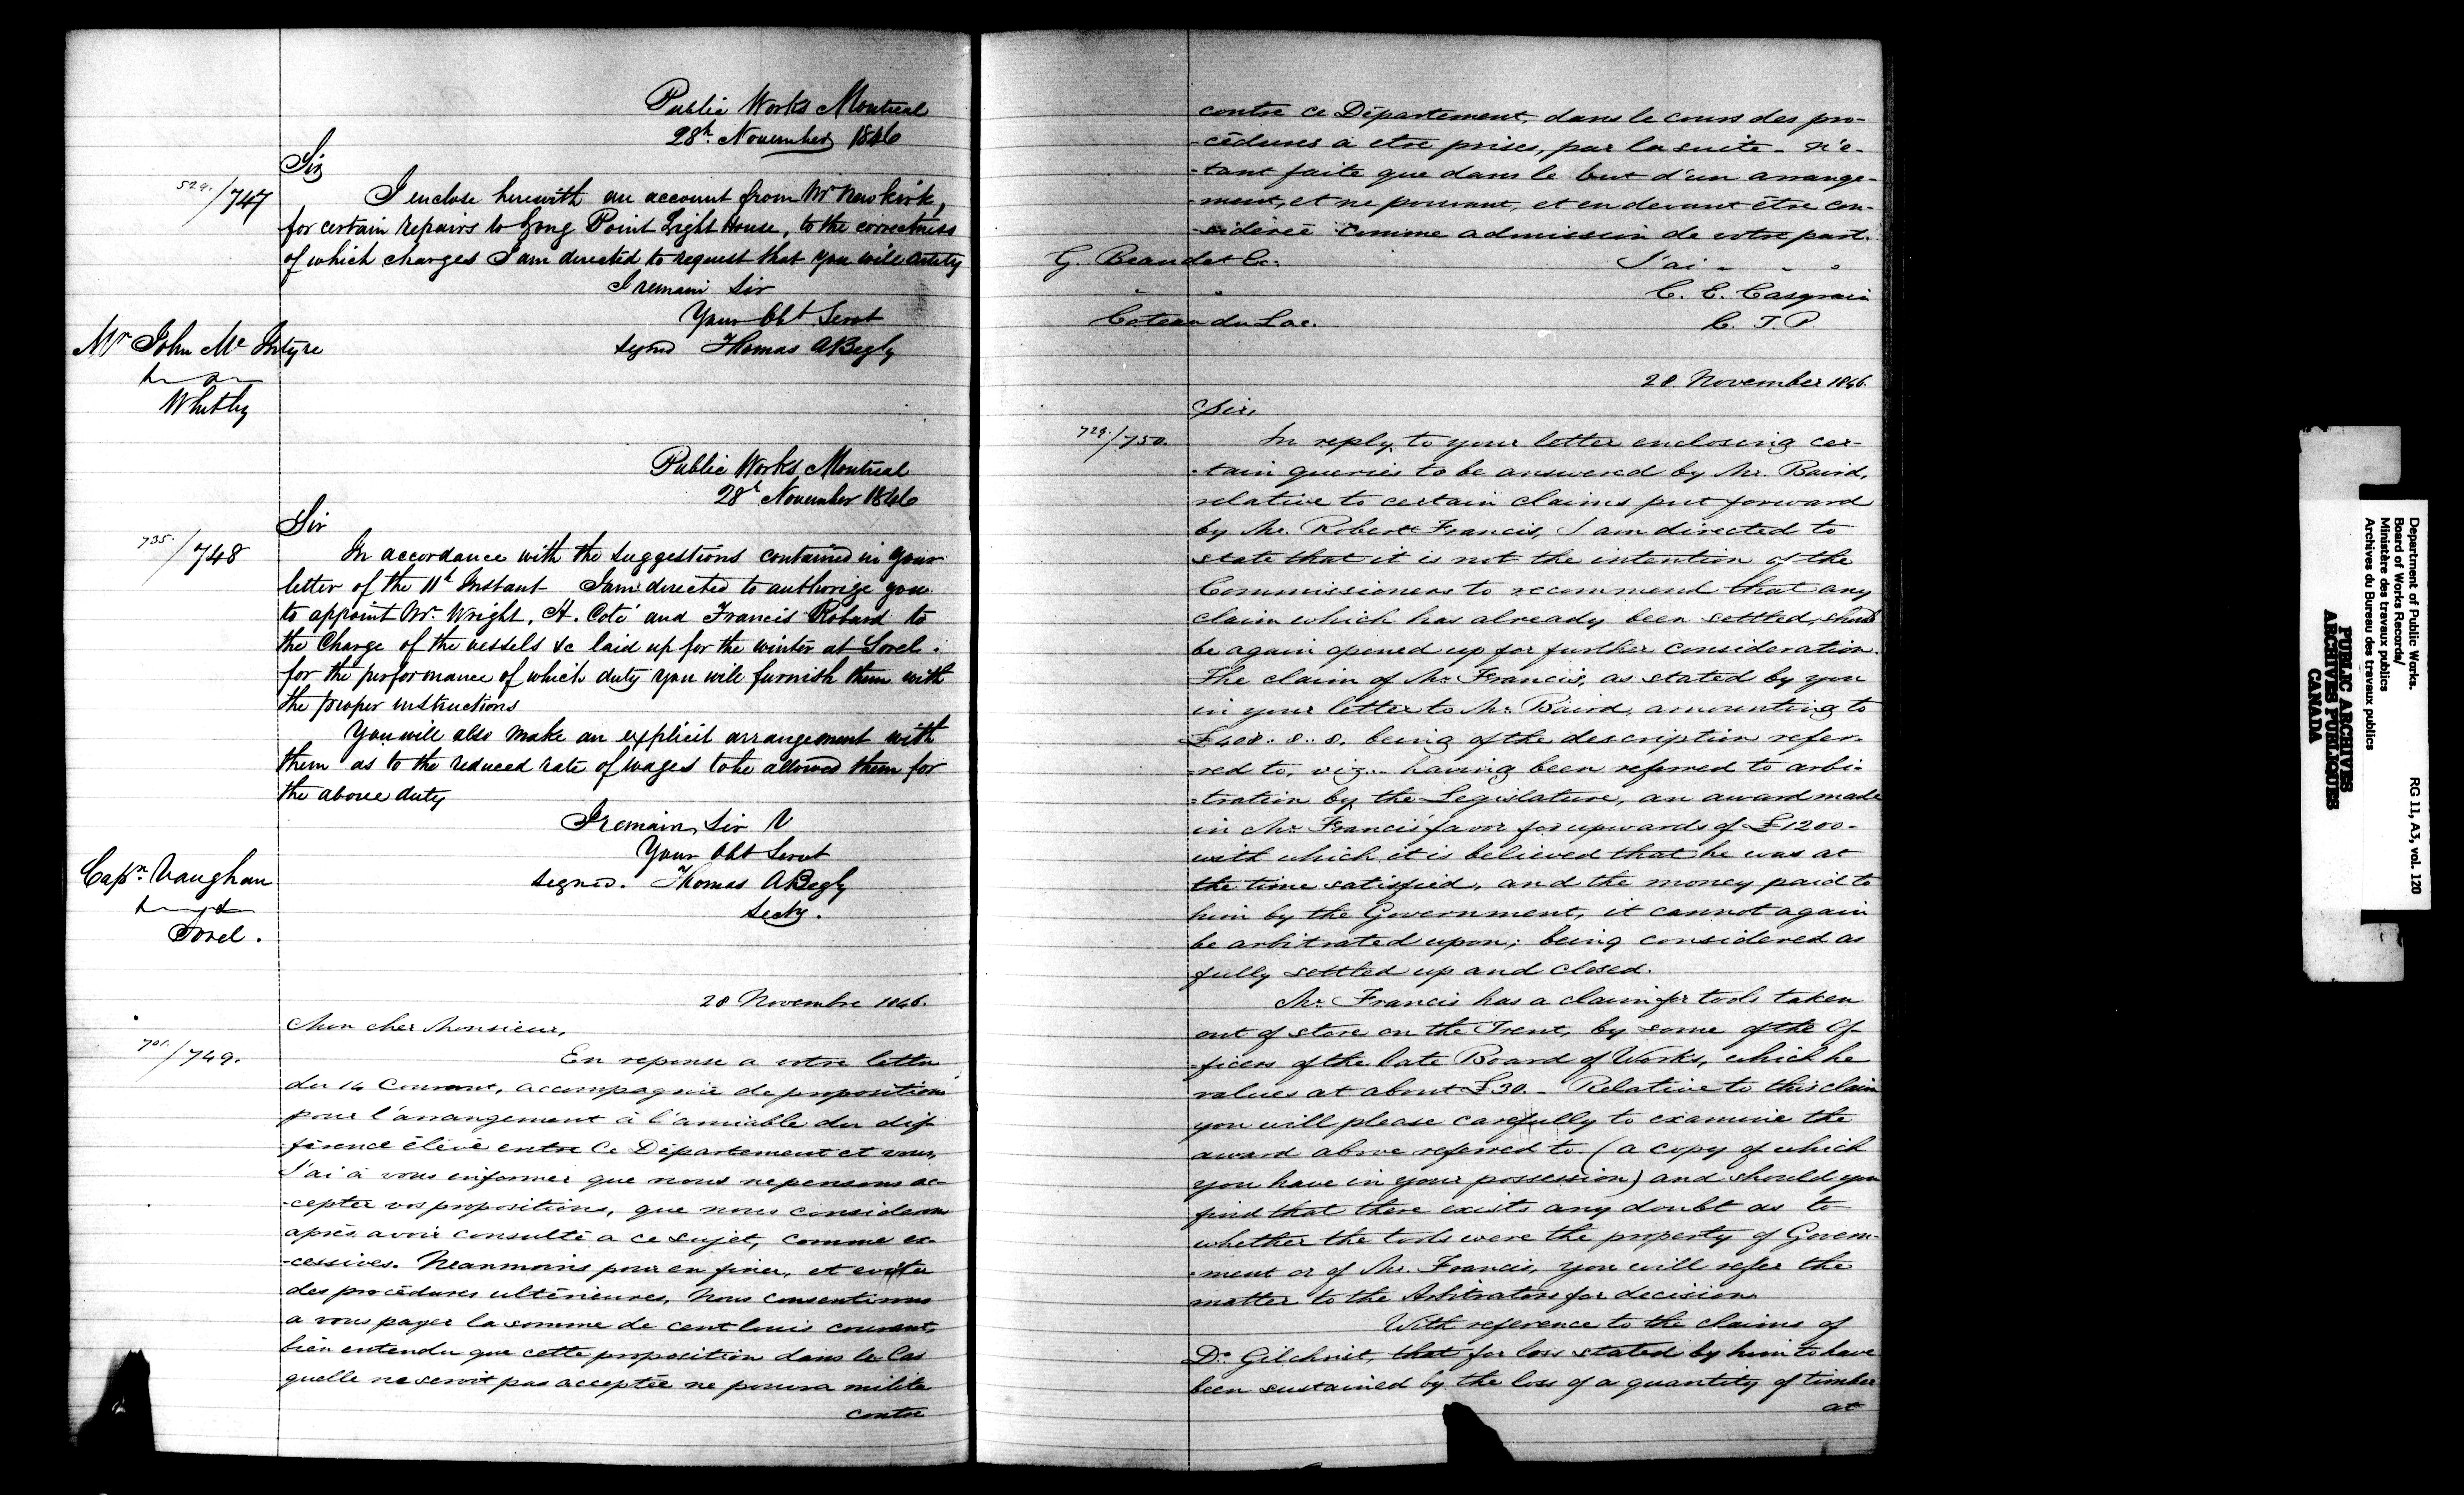 Public Works Montreal
28th November 1846
Sir
524./747
I enclose herewith an account from Mr Newkirk,
for certain repairs to Long Point Light House, to the correctness
of which charges I am directed to request that you will certify
I remain Sir
Your Obt Servt
signed Thomas A Begly
Mr John Mc Intyre
Whitby
Public Works Montreal
28th November 1846
Sir
735./748
In accordance with the suggestions contained in your
letter of the 11th Instant I am directed to authorize you
to appoint Mr. Wright, A. Coté and Francis Robard to
the Charge of the vessels &c laid up for the winter at Sorel.
for the performance of which duty you will furnish them with
the proper instructions
You will also make an explicit arrangement with
them as to the reduced rate of wages to be allowed them for
the above duty
I remain, Sir
Your Obt Servt
signed. Thomas A Begly
Secty.
Capn. Vaughan
Sorel.
28 Novembre 1846.
Mon cher Monsieur,
701./749.
En reponse a votre lettre
du 14 Courant, accompagnie de propositions
pour l'arrangement à l'amiable du dif-
-férence élévé entre Ce Département et vous,
J'ai à vous informer que nous ne pensons ac-
-cepter vos propositions, que nous considerons
après avoir consulté a ce sujet, comme ex-
-cessives. Neanmoins pour en finir, et eviter
des procédures ultérieures, Nous consentirons
a vous payer la somme de cent louis courant,
bien entendu que cette proposition dans le Cas
quelle ne seroit pas acceptée ne pourra milite
contre
contre ce Département, dans le cours des pro-
-cédures à etre prises, par la suite - n'é-
-tant faite que dans le but d'un arrange-
-ment, et ne pouvant, et en devant être con-
-sidérée comme admission de votre part.
G. Beaudet Ec.
J'ai - - -
C. E. Casgrain
C. T. P.
Coteau du Lac.
28 November 1846.
Sir,
729./750.
In reply to your letter enclosing cer-
-tain queries to be answered by Mr. Baird,
relative to certain claims put forward
by Mr. Robert Francis, I am directed to
state that it is not the intention of the
Commissioners to recommend that any
claim which has already been settled, should
be again opened up for further consideration.
The claim of Mr. Francis, as stated by you
in your letter to Mr. Baird, amounting to
£408. 8.. 8. being of the description refer-
-red to, viz.. having been referred to arbi-
-tration by the Legislature, an award made
in Mr. Francis' favor for upwards of £1200-
with which it is believed that he was at
the time satisfied, and the money paid to
him by the Government, it cannot again
be arbitrated upon; being considered as
fully settled up and closed.
Mr. Francis has a claim for tools taken
out of store on the Trent, by some of the Of-
-ficers of the late Board of Works, which he
values at about £30. - Relative to this claim
you will please carefully to examine the
award above referred to (a copy of which
you have in your possession) and should you
find that there exists any doubt as to
whether the tools were the property of Govern-
-ment or of Mr. Francis, you will refer the
matter to the Arbitrators for decision.
With reference to the claims of
Dr. Gilchrist, that for loss stated by him to have
been sustained by the loss of a quantity of timber
at
Department of Public Works.
Board of Works Records/
Ministère des travaux publics
Archives du Bureau des travaux publics
RG 11, A3, vol. 120
PUBLIC ARCHIVES
ARCHIVES PUBLIQUES
CANADA